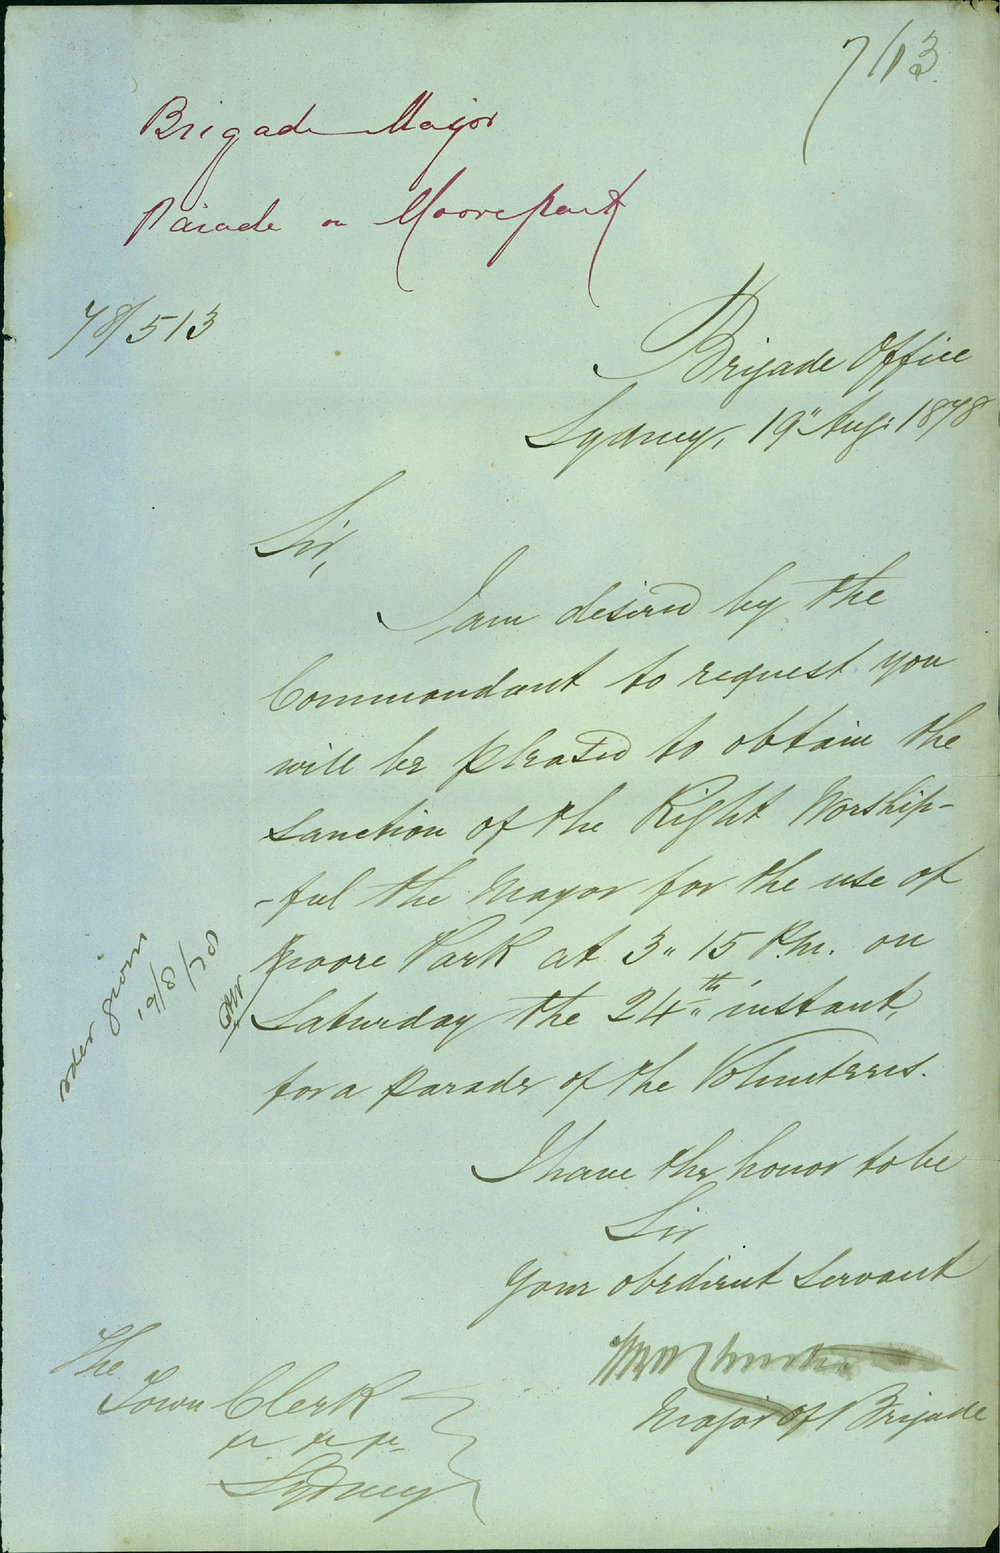 7/13
Brigade Major
Parade on Moore park
78/513
Brigade Office
Sydney, 19" Aug: 1878
Sir,
I am desired by the
Commandant to request you
will be pleased to obtain the
sanction of the Right Worship-
-ful the Mayor for the use of
Moore Park at 3"15 P.M. on
Saturday the 24th" instant,
for a Parade of the Volunteers.
order given
19/8/78
I have the honor to be
Sir
Your obedient servant
Major of Brigade
The
Town Clerk
Sydney